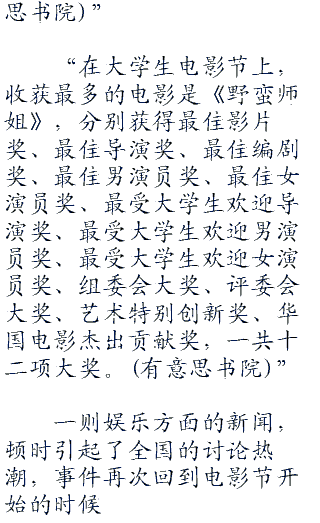 思书院）”
“在大学生电影节上，
收获最多的电影是《野蛮师
姐》，分别获得最住影片
奖、最住导演奖、最住编剧
奖、最住男演员奖、最住女
演员奖、最受大学生欢迎导
演奖、最受大学生欢迎男演
员奖、最受大学生欢迎女演
员奖、组委会大奖、评委会
大奖、艺术特别创新奖、华
国电影杰出贡献奖，一共十
二项大奖。（有意思书院）”
一则娱乐方面的新闻，
顿时引起了全国的讨论热
潮，事件再次回到电影节开
始的时候